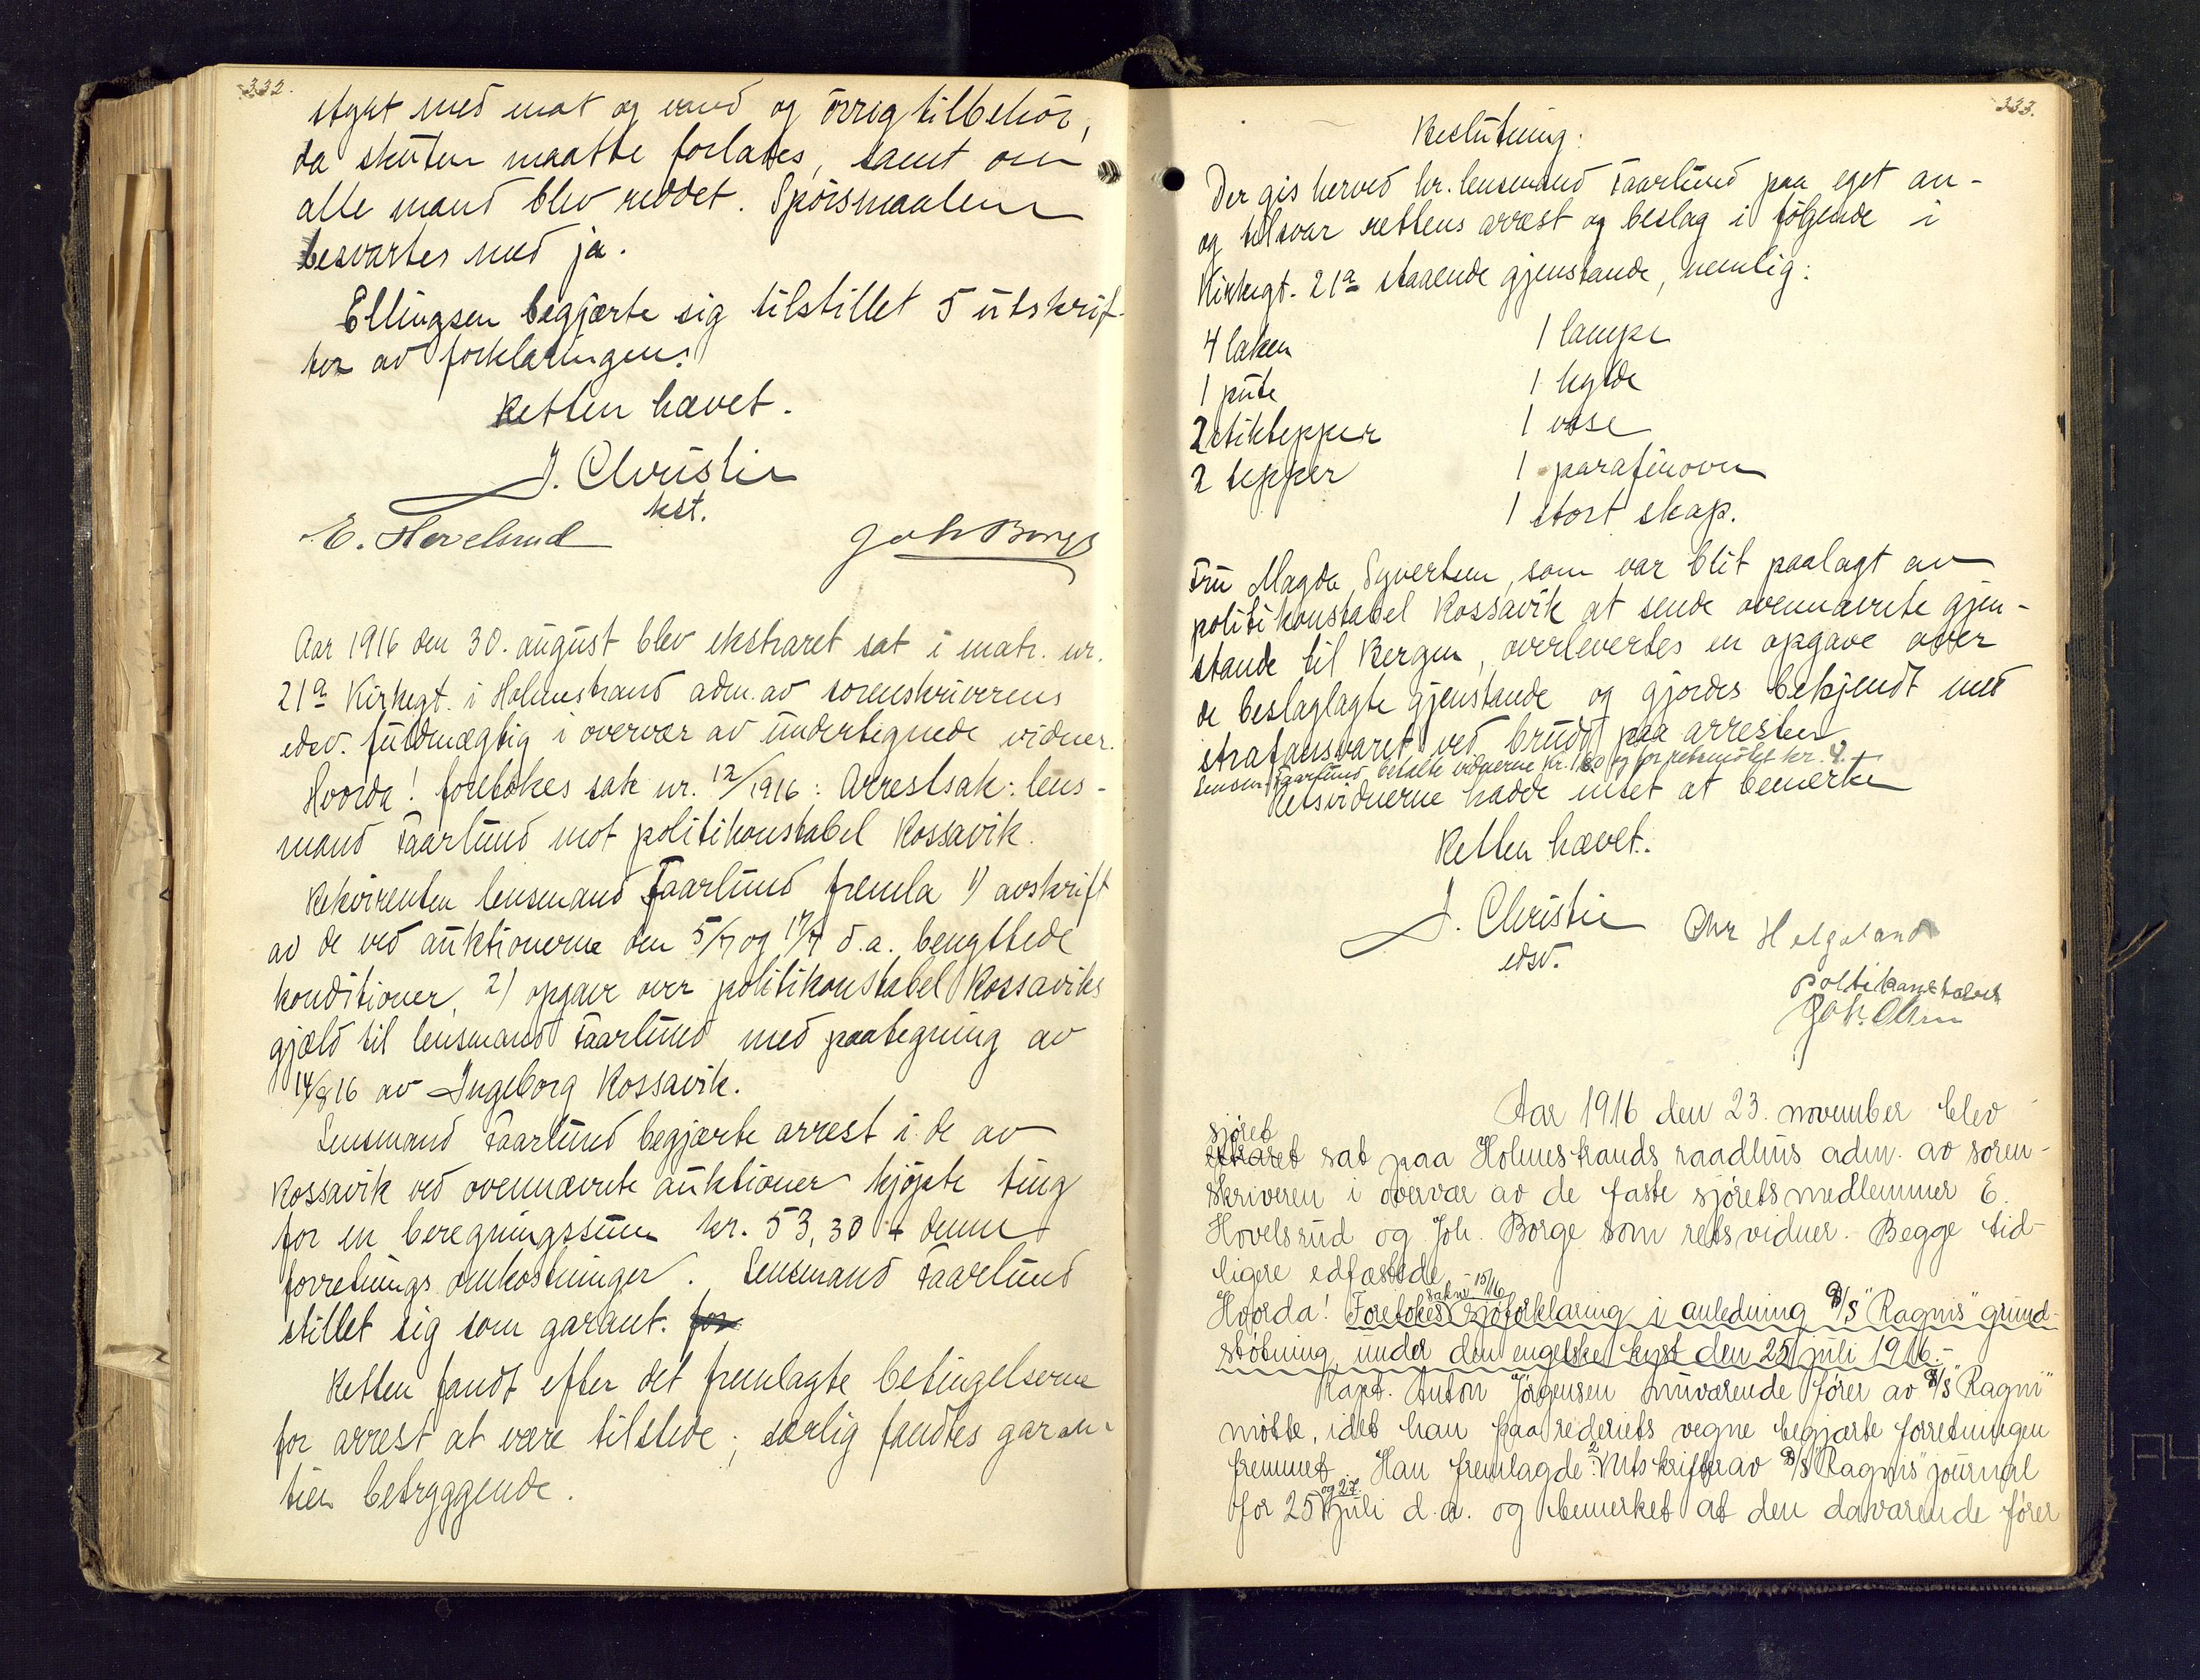 332.
styrt med mat og vand og övrig tilbehör,
da skuten maatte forlates, samt om
alle mand blev reddet. Spörsmaalene
besvartes med ja.
Ellingsen begjærte sig tilstillet 5 utskrif-
ter av forklaringen.
Retten hævet.
J. Christie
kst.
E. Hovelsrud Joh Borge
Aar 1916 den 30. august blev ekstraret sat i matr. nr.
21a Kirkegt. i Holmestrand adm. av sorenskriverens
edsv. fuldmægtig i overvær av undertegnede vidner.
Hvorda! foretokes sak nr. 12/1916: Arrestsak: lens-
mand Faarlund mot politikonstabel Kossavik.
Rekvirenten lensmand Faarlund fremla 1) avskrift
av de ved auktionerne den 5/7 og 17/7 d.a. benyttede
konditioner, 2) opgave over politikonstabel Kossaviks
gjæld til lensmand Faarlund med paategning av
14/8 16 av Ingeborg Kossavik.
Lensmand Faarlund begjærte arrest i de av
Kossavik ved ovennævnte auktioner kjöpte ting
for en beregningssum kr. 53,30 + denne
forretnings omkostninger. Lensmand Faarlund
stillet sig som garant. for
Retten fandt efter det fremlagte betingelserne
for arrest at være tilstede; særlig fandtes garan-
tien betryggende.
333.
Beslutning:
Der gis herved hr. lensmand Faarlund paa eget an-
og tilsvar rettens arrest og beslag i fölgende i
Kirkegt. 21a staaende gjenstande, nemlig:
4 laken 1 lampe
1 pute 1 hylde
2 stiktepper 1 vase
2 tepper 1 parafinovn
1 stort skap.
Fru Magda Syvertsen, som var blit paalagt av
politikonstabel Kossavik at sende ovennævnte gjen-
stande til Bergen, overlevertes en opgave over
de beslaglagte gjenstande og gjordes bekjendt med
strafansvaret ved brudd paa arresten
Lensm. Faarlund betalte vidnerne kr. og for retsmötet kr. 4.
Retsvidnerne hadde intet at bemerke
Retten hævet.
J. Christie Chr Helgeland
edsv.
politikonstabel
Joh. Olsen
Aar 1916 den 23. november blev
sjöret
ekstraret sat paa Holmestrands raadhus adm. av soren-
skriveren i overvær av de faste sjöretsmedlemmer E.
Hovelsrud og Joh. Borge som retsvidner. Begge tid-
ligere edfæstede.
sak nr. 15/16
Hvorda! Foretokes sjöforklaring i anledning D/S "Ragnis" grund-
stötning under den engelske kyst den 25 juli 1916.-
Kapt. Anton Jörgensen nuværende förer av D/S "Ragni"
mötte, idet han paa rederiets vegne begjærte forretningen
fremmet. Han fremlagde 2 Utskrifter av D/S "Ragnis" journal
og 27.
for 25 juli d.a. og bemerket at den daværende förer